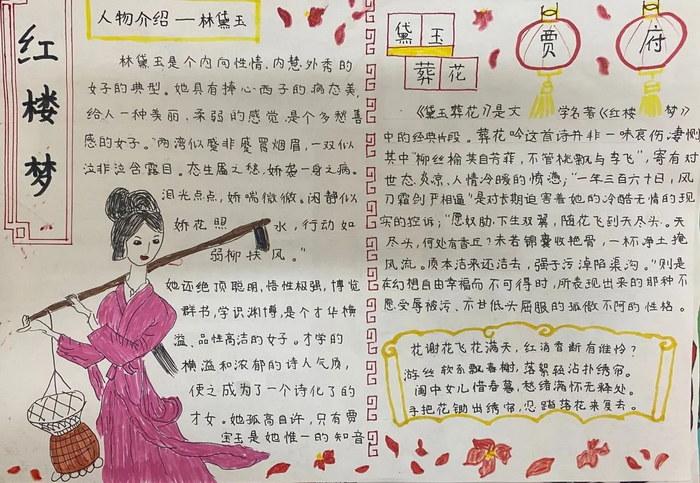 红楼梦
人物介绍—林黛玉
林黛玉是个内向性情,内慧外秀的
女子的典型。她具有捧心西子的病态美,
给人一种美丽、柔弱的感觉,是个多愁善
感的女子。“两湾似蹙非蹙罥烟眉,一双似
泣非泣含露目。态生靥之愁,娇袭一身之病。
泪光点点,娇喘微微。闲静似
娇花照水,行动如
弱柳扶风。”
她还绝顶聪明,悟性极强,博览
群书,学识渊博,是个才华横
溢、品性高洁的女子。才学的
横溢和浓郁的诗人气质,
使之成为了一个诗化了的
才女。她孤高自许,只有贾
宝玉是她惟一的知音
黛玉
葬花
贾府
《黛玉葬花》是文学名著《红楼梦》
中的经典片段。葬花吟这首诗并非一味哀伤,凄恻
其中“柳丝榆荚自芳菲,不管桃飘与李飞”,寄有对
世态炎凉、人情冷暖的愤懑;“一年三百六十日,风
刀霜剑严相逼”是对长期迫害着她的冷酷无情的现
实的控诉;“愿奴胁下生双翼,随花飞到天尽头。天
尽头,何处有香丘?未若锦囊收艳骨,一杯净土掩
风流。质本洁来还洁去,强于污淖陷渠沟。”则是
在幻想自由幸福而不可得时,所表现出来的那种不
愿受辱被污、不甘低头屈服的孤傲不阿的性格。
花谢花飞花满天,红消香断有谁怜?
游丝软系飘春榭,落絮轻沾扑绣帘。
闺中女儿惜春暮,愁绪满怀无释处。
手把花锄出绣帘,忍踏落花来复去。